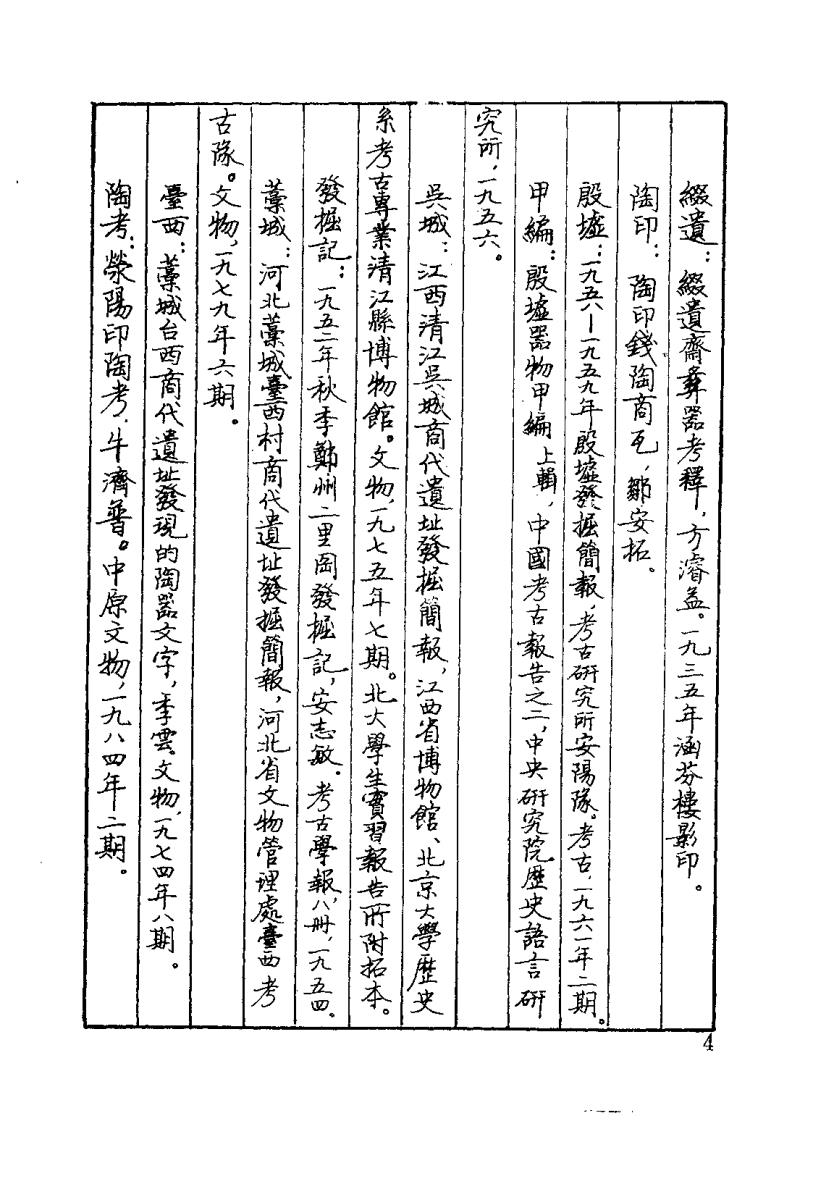 綴遺：綴遺齋彝器考釋，方濬益。一九三五年涵芬樓影印。
陶印：陶印錢陶商瓦，鄒安拓。
殷墟：一九五八—一九五九年殷墟發掘簡報，考古研究所安陽隊。考古，一九六一年二期。
甲編：殷墟器物甲編上輯，中國考古報告之二，中央研究院歷史語言研
究所，一九五六。
吳城：江西清江吳城商代遺址發掘簡報，江西省博物館、北京大學歷史
系考古專業清江縣博物館。文物，一九七五年七期。北大學生實習報告所附拓本。
發掘記：一九五二年秋季鄭州二里岡發掘記，安志敏．考古學報八冊，一九五四．
藁城：河北藁城臺西村商代遺址發掘簡報，河北省文物管理處臺西考
古隊。文物，一九七九年六期。
臺西：藁城台西商代遺址發現的陶器文字，季雲．文物，一九七四年八期。
陶考：滎陽印陶考．牛濟普。中原文物，一九八四年二期。
4